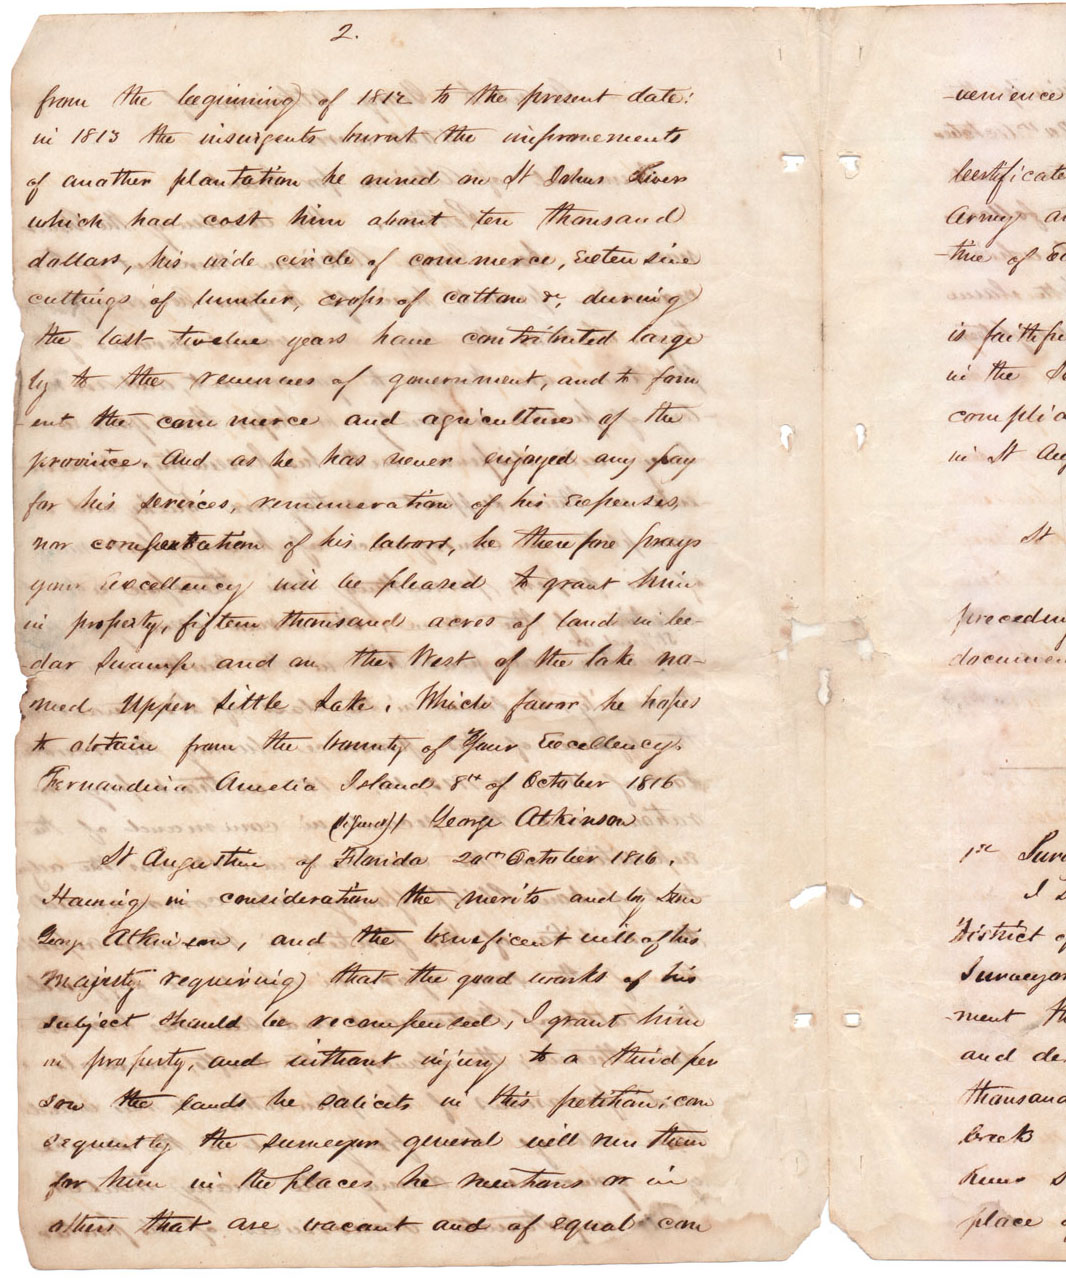 2.
from the beginning of 1812 to the present date:
in 1813 the insurgents burnt the improvements
of another plantation he owned on St Johns River
which had cost him about ten thousand
dollars, his wide circle of commerce, Extensive
cuttings of lumber, crops of cotton &c, during
the last twelve years have contributed large
ly to the revenues of government, and to fom
ent the commerce and agriculture of the
province. And as he has never enjoyed any pay
for his services, remuneration of his Expenses,
nor compensation of his labors, he therefore prays
your Excellency will be pleased to grant him
in property, fifteen thousand acres of land in Ce-
dar Swamp and on the West of the lake na-
med Upper Little Lake. Which favor he hopes
to obtain from the bounty of Your Excellency.
Fernandina Amelia Island 8th of October 1816
(signed) George Atkinson
St Augustine of Florida 20th October 1816.
Having in consideration the merits and by Don
George Atkinson, and the beneficent will of his
Majesty requiring that the good works of his
subject should be recompensed, I grant him
in property, and without injury to a third per
son the lands he solicits in this petition; con
sequently the surveyor general will run them
for him in the places he mentions or in
others that are vacant and of equal con
-venience
Certificate
Army
-tive of
is faithfu
in the
complia
in St Au
St
preceding
documen
1st Surv
I
District of
Surveyor
-ment th
and de
thousand
Creek
Runs S
place of